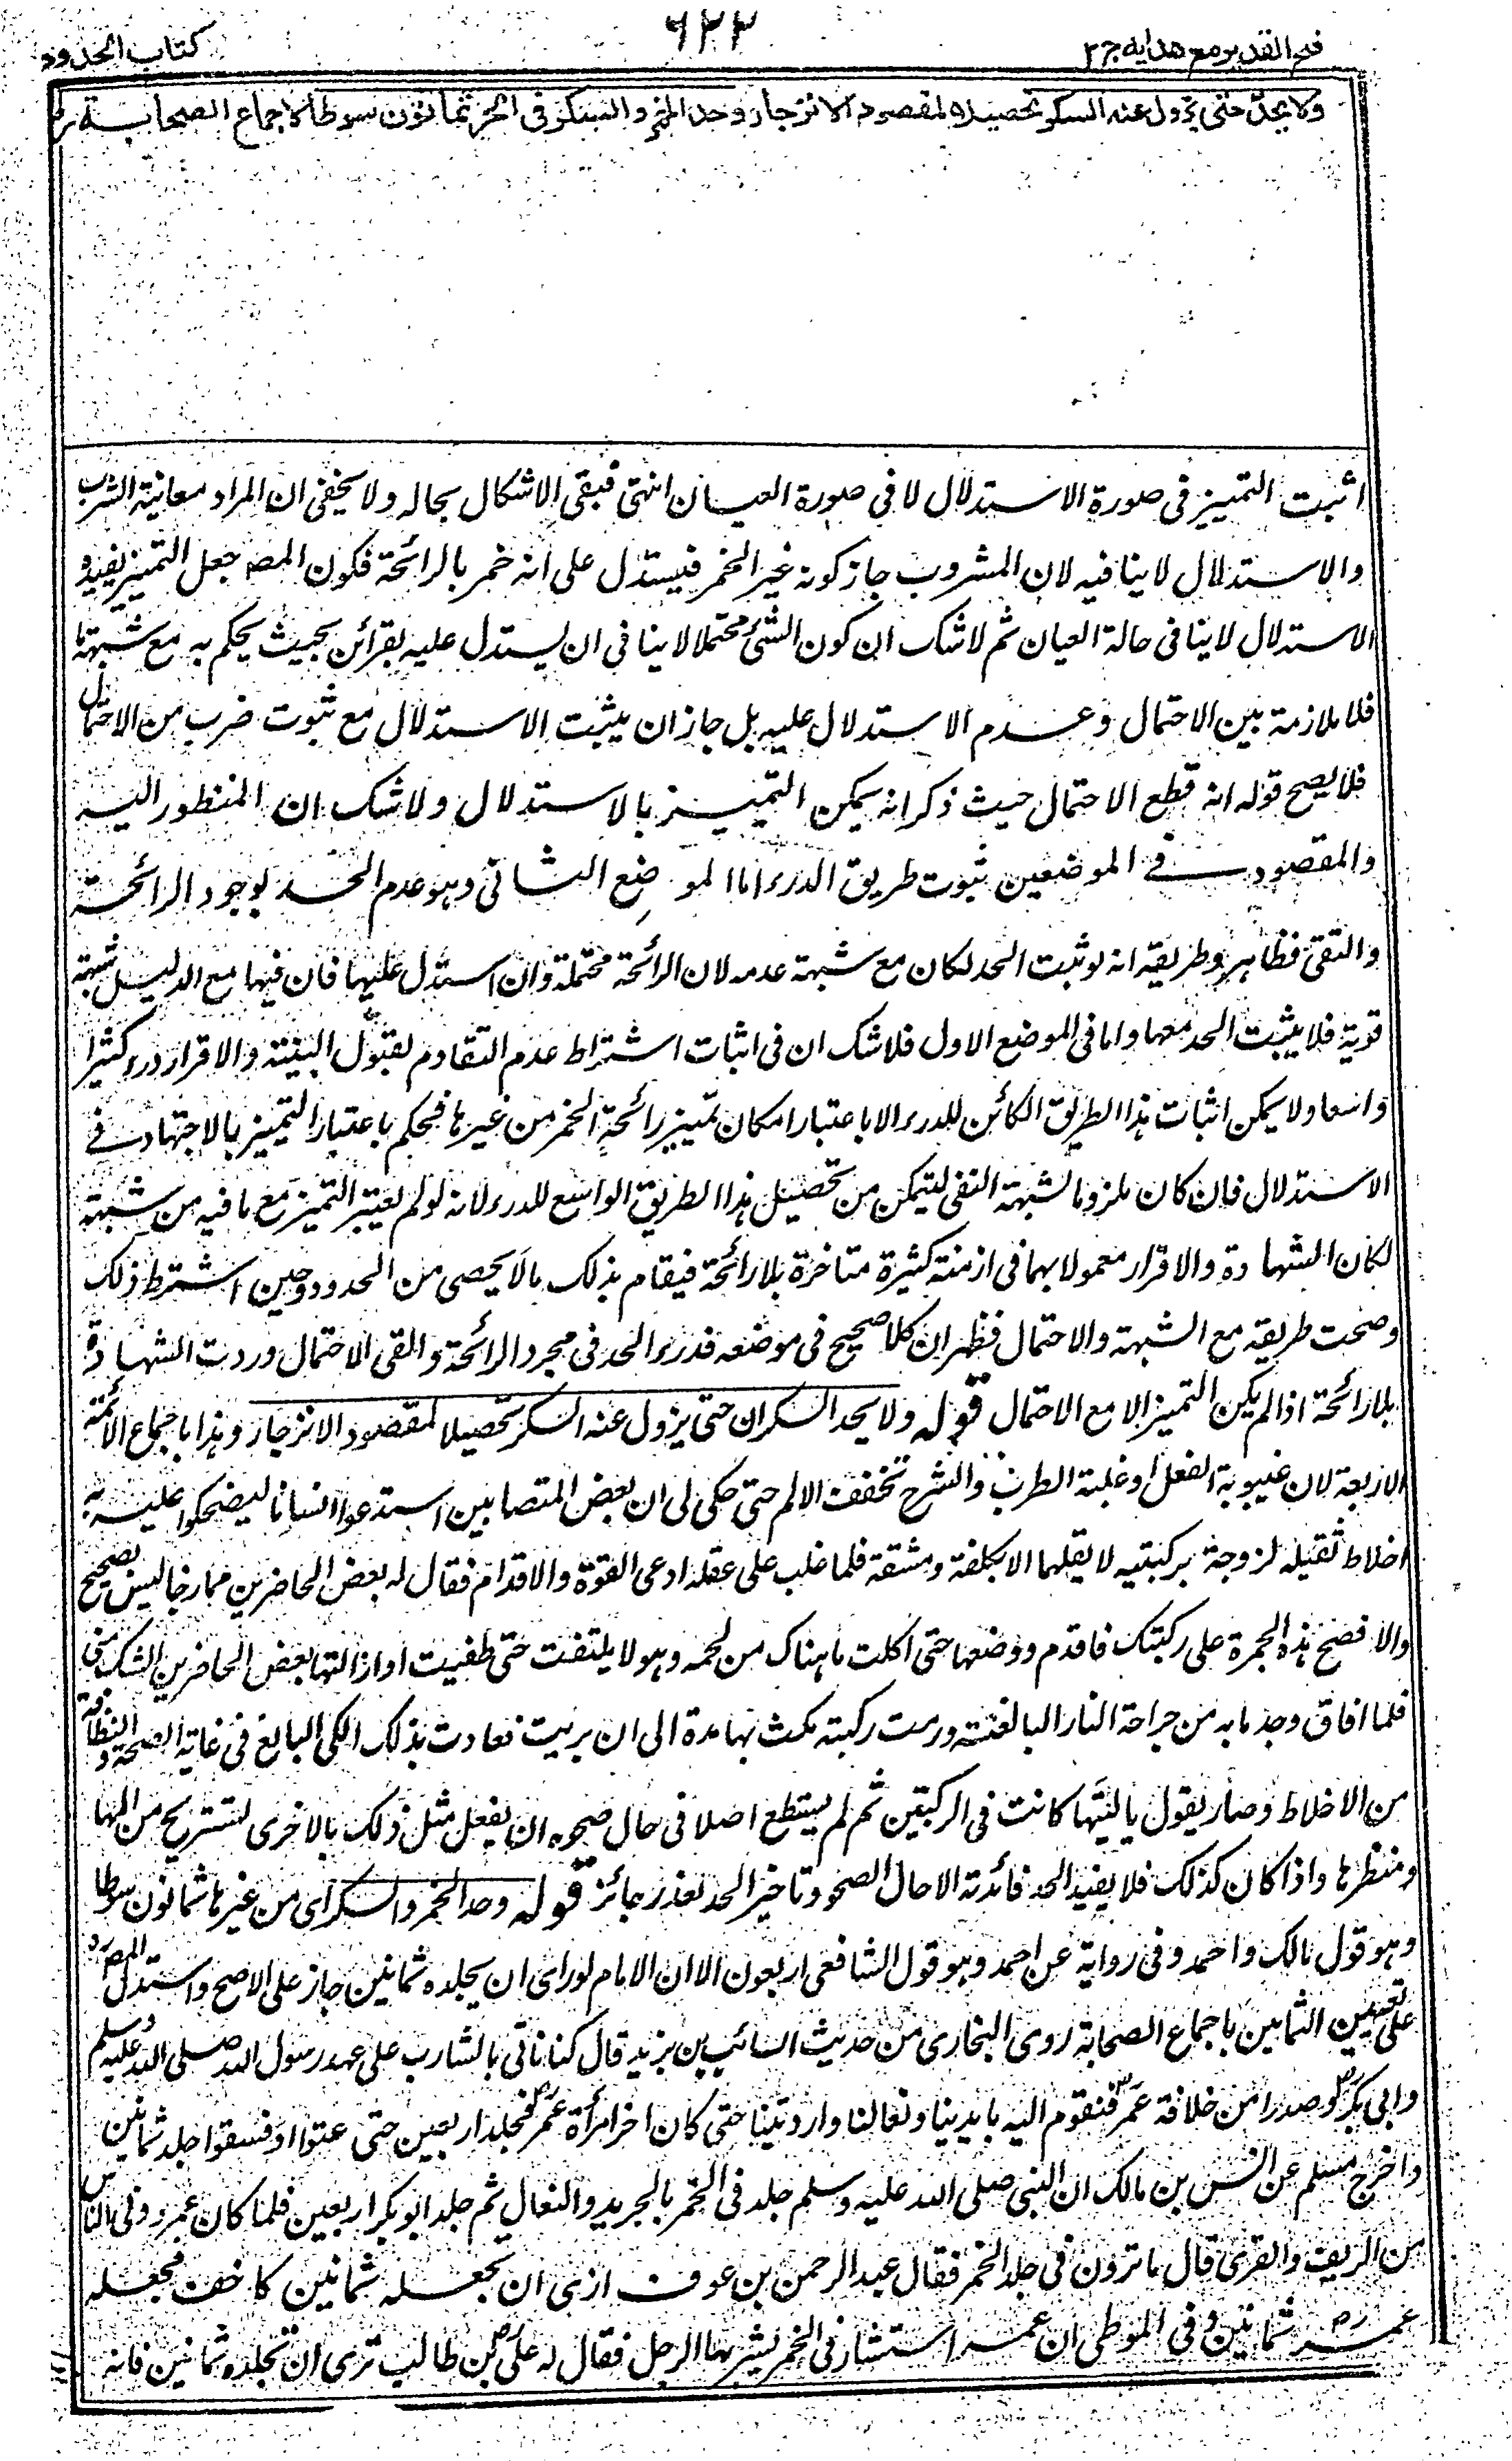 فتح القدير مع هدايه ج ٢
٦٢٢
كتاب الحدود
ولا يحد حتى يزول عنه السكر تحصيلا لمقصود الانزجار وحد الخمر والسكر فى الحر ثمانون سوطا لاجماع الصحابة رض
اثبت التمييز فى صورة الاستدلال لا فى صورة العيان انتهى فبقى الاشكال بحاله ولا يخفى ان المراد معاينة الشرب
والاستدلال لا ينافيه لان المشروب جاز كونه غير الخمر فيستدل على انه خمر بالرائحة فكون المصـ جعل التمييز يفيده
الاستدلال لا ينافى حالة العيان ثم لا شك ان كون الشئ محتملا لا ينافى ان يستدل عليه بقرائن بحيث يحكم به مع شبهة ما
فلا ملازمة بين الاحتمال وعدم الاستدلال عليه بل جاز ان يثبت الاستدلال مع ثبوت ضرب من الاحتمال
فلا يصح قوله انه قطع الاحتمال حيث ذكر انه يمكن التمييز بالاستدلال ولا شك ان المنظور اليه
والمقصود فى الموضعين ثبوت طريق الدرء اما الموضع الثانى وهو عدم الحد بوجود الرائحة
والتقئ فظاهر وطريقه انه لو ثبت الحد لكان مع شبهة عدمه لان الرائحة محتملة وان استدل عليها فان فيها مع الدليل شبهة
قوية فلا يثبت الحد معها واما فى الموضع الاول فلا شك ان فى اثبات اشتراط عدم التقادم لقبول البينة والاقرار درء كثيرا
واسعا ولا يمكن اثبات هذا الطريق الكائن للدرء الا باعتبار امكان تمييز رائحة الخمر من غيرها فحكم باعتبار التمييز بالاجتهاد فى
الاستدلال فان كان ملزوما لشبهة النفى ليتمكن من تحصيل هذا الطريق الواسع للدرء لانه لو لم يعتبر التمييز مع ما فيه من شبهة
لكان الشهادة والاقرار معمولا بهما فى ازمنة كثيرة متاخرة بلا رائحة فيقام بذلك ما لا يحصى من الحدود وحين اشترط ذلك
وضحت طريقه مع الشبهة والاحتمال فظهر ان كلا صحيح فى موضعه فدرء الحد فى مجرد الرائحة والقئ الاحتمال وردت الشهادة
بلا رائحة اذا لم يكن التمييز الا مع الاحتمال قوله ولا يحد السكران حتى يزول عنه السكر تحصيلا لمقصود الانزجار وهذا باجماع الائمة
الاربعة لان غيبوبة العقل او غلبة الطرب والشرح تخفف الالم حتى حكى لى ان بعض المتصابين استدعوا انسانا ليضحكوا عليه به
اخلاط ثقيلة لزوجة بركبتيه لا يقلهما الا بكلفة ومشقة فلما غلب على عقله ادعى القوة والاقدام فقال له بعض الحاضرين ممازحا ليس بصحيح
والا فضح هذه الجمرة على ركبتك فاقدم ووضعها حتى اكلت ما هناك من لحمه وهو لا يلتفت حتى طفيت او ازالتها بعض الحاضرين الشك منى
فلما افاق وجد ما به من جراحة النار البالغة وورمت ركبته مكث بها مدة الى ان بريت فعادت بذلك الكى البالغ فى غاية الصحة والنظافة
من الاخلاط وصار يقول يا ليتها كانت فى الركبتين ثم لم يستطع اصلا فى حال صحوه ان يفعل مثل ذلك بالاخرى لتستريح من المها
ومنظرها واذا كان كذلك فلا يفيد الحد فائدته الا حال الصحو وتاخير الحد لعذر جائز قوله وحد الخمر والسكر اى من غيرها ثمانون سوطا
وهو قول مالك واحمد وفى رواية عن احمد وهو قول الشافعى اربعون الا ان الامام لو راى ان يجلده ثمانين جاز على الاصح واستدل المصـ رح
على تعيين الثمانين باجماع الصحابة روى البخارى من حديث السائب بن يزيد قال كنا ناتى بالشارب على عهد رسول الله صلى الله عليه وسلم
وابى بكر رض وصدرا من خلافة عمر رض فنقوم اليه بايدينا ونعالنا وارديتنا حتى كان اخر امرأة عمر رض فجلد اربعين حتى عتوا او فسقوا جلد ثمانين
واخرج مسلم عن انس بن مالك ان النبى صلى الله عليه وسلم جلد فى الخمر بالجريد والنعال ثم جلد ابو بكر اربعين فلما كان عمر ودنى الناس
من الريف والقرى قال ما ترون فى جلد الخمر فقال عبد الرحمن بن عوف ارى ان تجعله ثمانين كاخف فجعله
عمر رض ثمانين وفى الموطى ان عمر استشار فى الخمر يشربها الرجل فقال له على رض بن طالب نرى ان تجلده ثمانين فانه